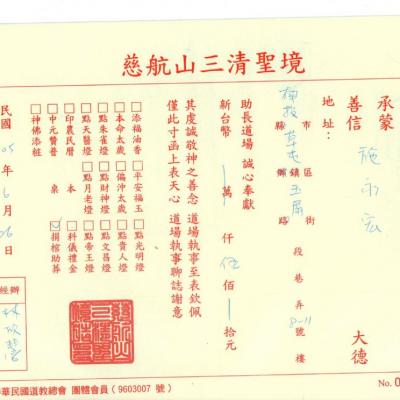 慈航山三清聖境
承蒙
善信 施永宏 大德
地址：南投縣市草屯鄉鎮區玉屏路街 段 巷 弄 8-11號 樓
助長道場 誠心奉獻
新台幣 萬 仟 伍佰 拾元
其虔誠敬神之善念 道場執事至表欽佩
僅此寸函上表天心 道場執事聊誌謝意
□添福油香 □平安福玉 □點光明燈
□本命太歲 □偏沖太歲 □點貴人燈
□點朱雀燈 □點財神燈 □點文昌燈
□點天醫燈 □點月老燈 □點帝王燈
□印農民曆 桌本 □科儀禮金
□中元贊普 ☑捐棺助葬
□神佛添粧
民國 05年 6月 26日
經辦
林
華民國道教總會 團體會員（9603007 號）
No. 0